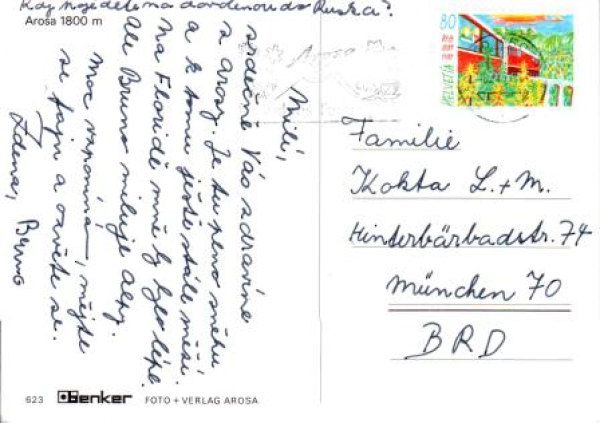 Kdy pojedete na dovolenou do Ruska?
Arosa 1800 m
Milí,
srdečně Vás zdravíme
z Arosy. Je tu plno sněhu
a k tomu ještě stále měží.
Na Floridě mně by bylo lépe.
ale Bruno miluje alpy.
Moc vzpomíná, mějte
se fajn a ozvěte se.
Zdena, Bruno
623 Benker FOTO + VERLAG AROSA
Arosa
80
HELVETIA
Familie
Kokta L. + M.
Hinterbärbadstr. 74
München 70
BRD